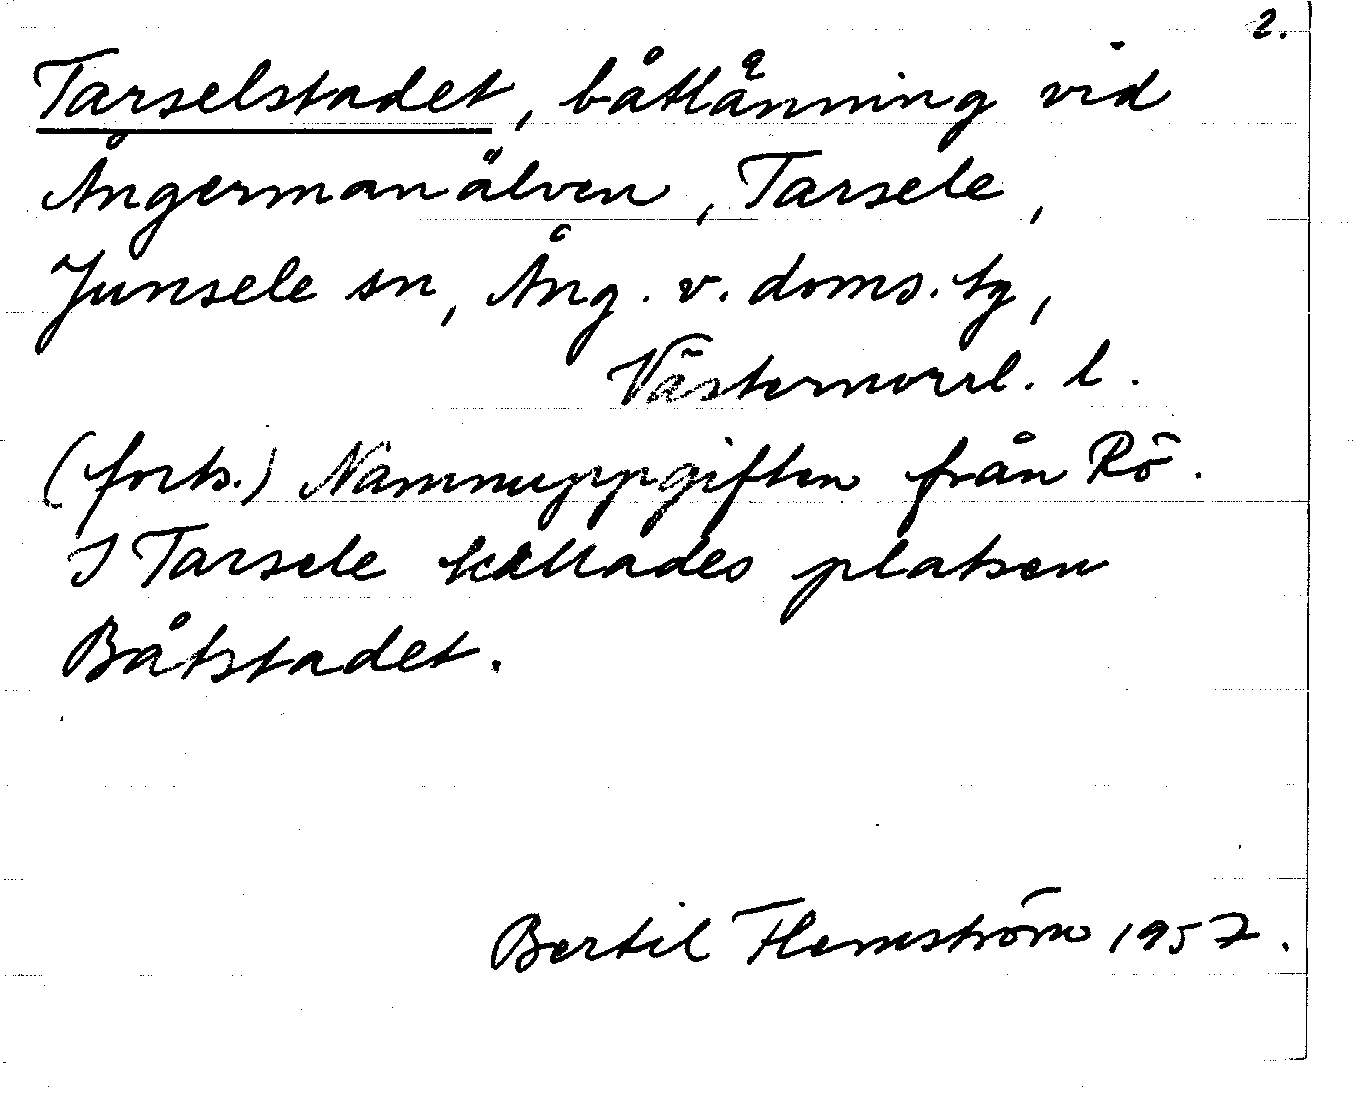 2.
Tarselstadet, båtlånning vid
Ångermanälven, Tarsele,
Junsele sn, Ång. v. doms. tg,
Västernorrl. l.
(forts.) Namnuppgiften från Rö.
I Tarsele kallades platsen
Båtstadet.
Bertil Flemström 1957.